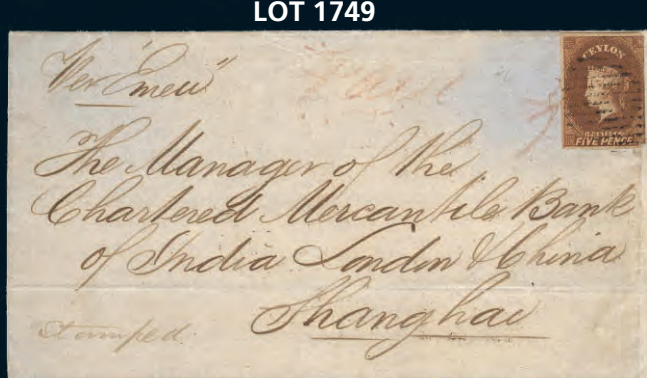 LOT 1749
Per "Emeu"
CEYLON
POSTAGE
FIVE PENCE
The Manager of the
Chartered Mercantile Bank
of India London & China
Shanghai
Stamped.